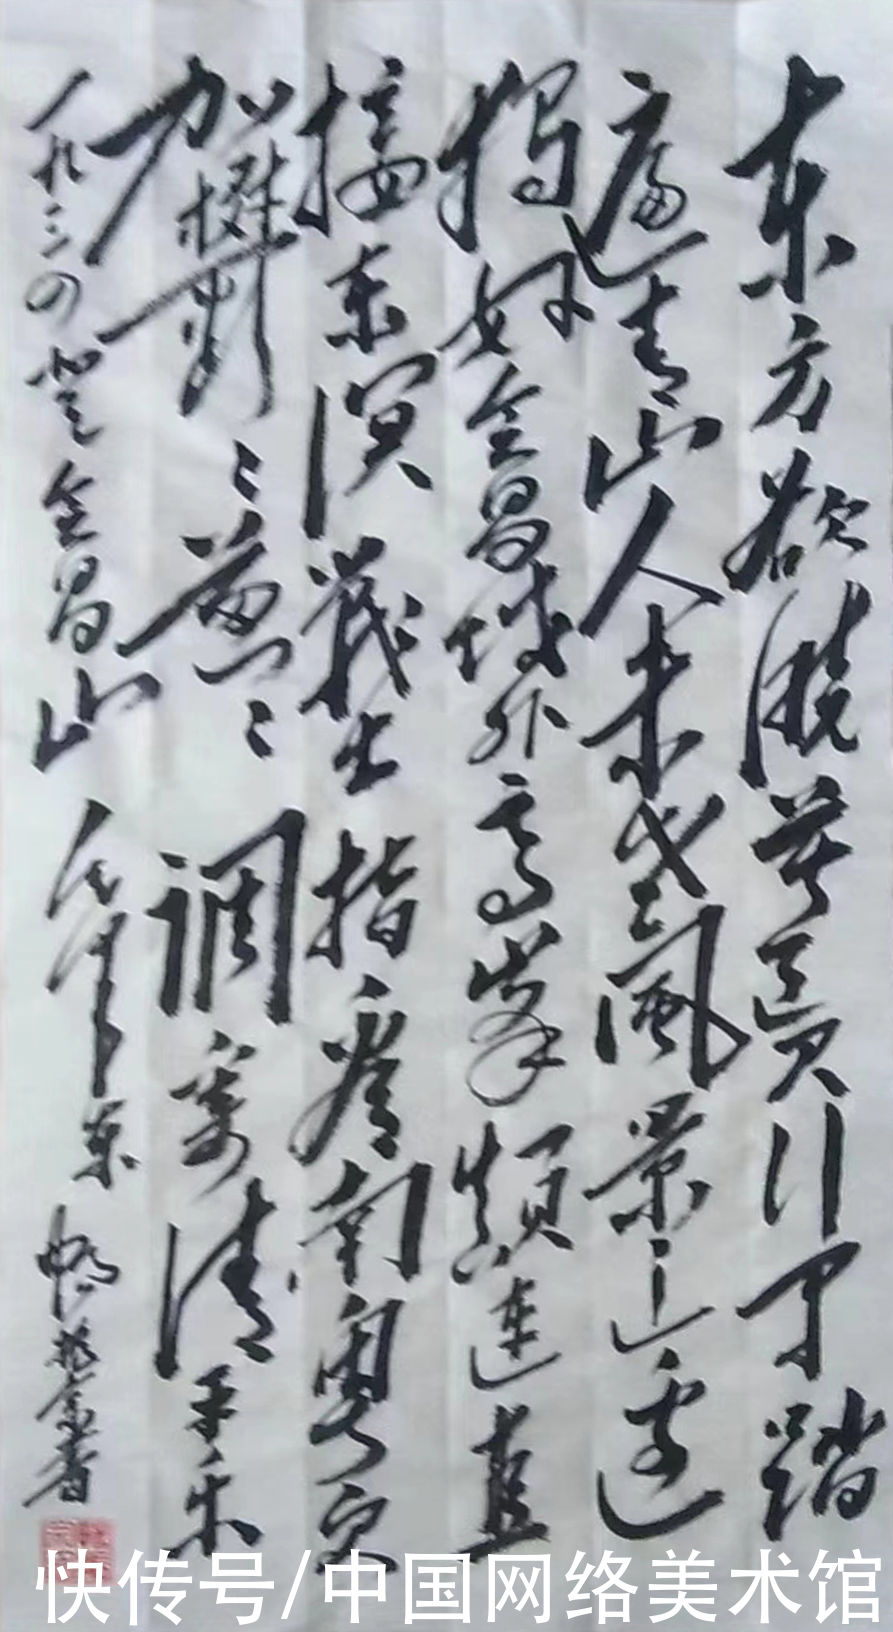 东方欲晓莫道君行早踏
遍青山人未老风景这边
独好会昌城外高峰颠连直
接东溟战士指看南粤更
加欝〻葱〻调寄清平乐
一九三四登会昌山毛泽东 书
快传号/中国网络美术馆